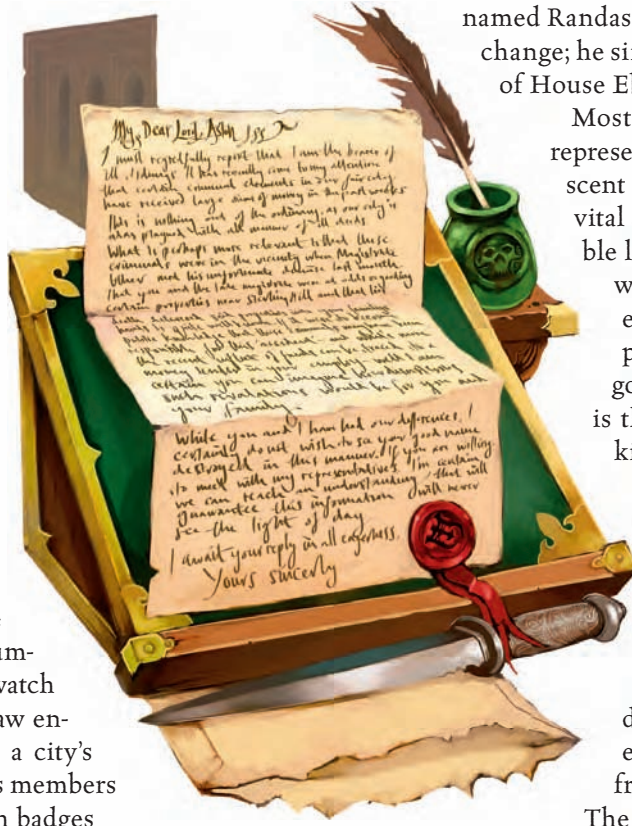 named Randas
change; he
of House
Most
represe
scent
vital
ble l
w
e
p
go
is th
My Dear Lord
I must regretfully report that I am the bearer of
ill tidings. It has recently come to my attention
that certain criminal elements in our fair city
have received large sums of money in the past weeks
This is nothing out of the ordinary, as our city is
plagued with all manner of ill deeds
What is perhaps more relevant is that these
criminals were in the vicinity when Magistrate
met his unfortunate demise last month
That you and the late magistrate were at odds regarding
certain properties near Hill and that his
public knowledge
responsible for this
the recent of funds can be traced to a
money lender in your employ well I am
certain you can imagine how disastrous
such revelations would be for you and
your family.
While you and I have had our differences, I
certainly do not wish to see your good name
destroyed in this manner. If you are willing
to meet with my representatives I'm certain
we can reach an understanding that will
guarantee this information will never
see the light of day
I await your reply in all eagerness.
Yours sincerly
um-
watch
aw en-
a city's
s members
n badges
d
e
fr
The